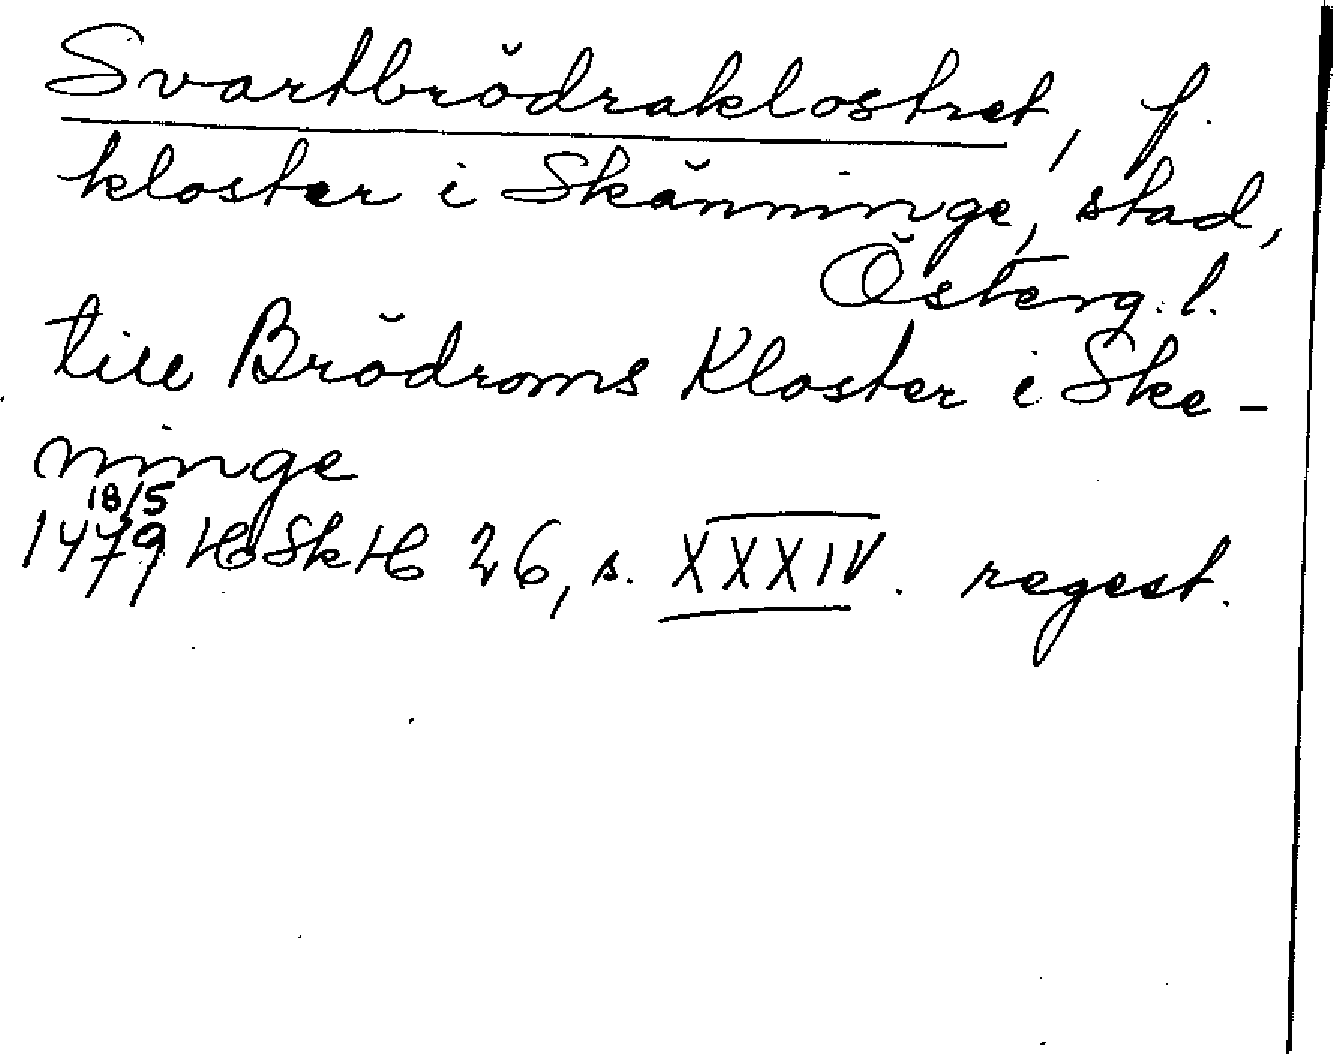 Svartbrödraklostret, f.
kloster i Skänninge, stad,
Österg.l.
till Brödroms Kloster i Ske-
ninge
18/5
1479 HSkH 26, s. XXXIV. regest.